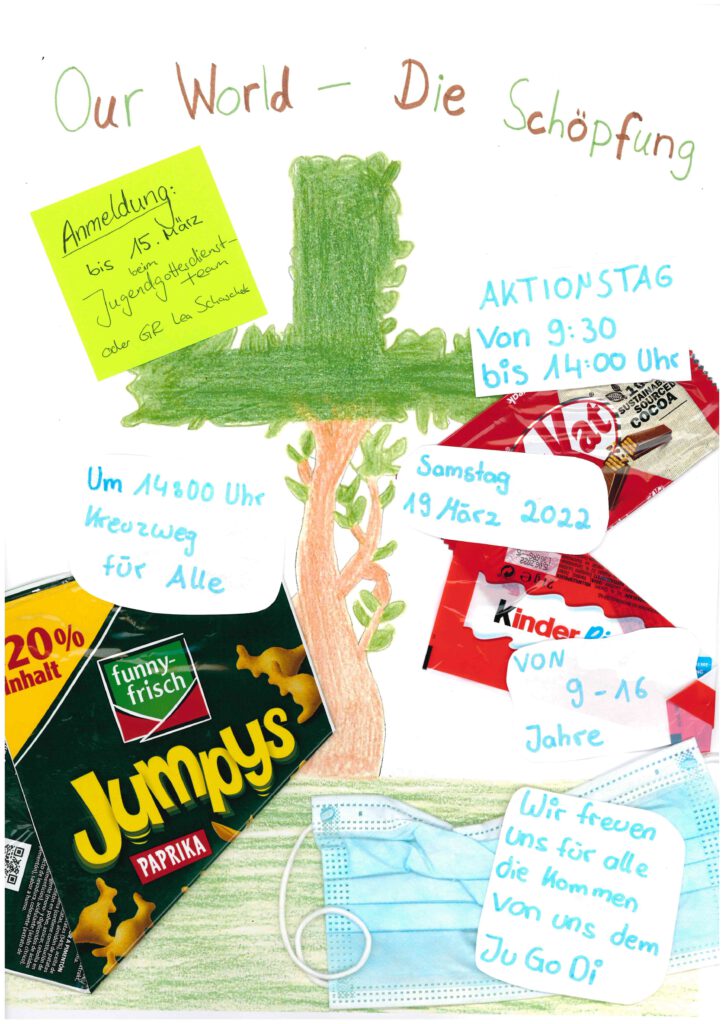 Our World - Die Schöpfung
Anmeldung:
bis 15. März
beim
Jugendgottesdienst-
team
oder GR Lea
AKTIONSTAG
Von 9:30
bis 14:00 Uhr
100%
SUSTAINABLY
SOURCED
COCOA
Kat
Um 14:00 Uhr
Kreuzweg
für Alle
Samstag
19 März 2022
Kinder
VON
9-16
Jahre
20%
Inhalt
funny-
frisch
Jumpys
PAPRIKA
Wir freuen
uns für alle
die Kommen
von uns dem
Ju Go Di